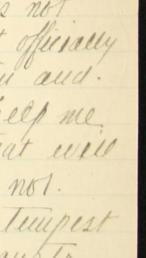 s not
officially
and.
help me
at will
not.
tempest